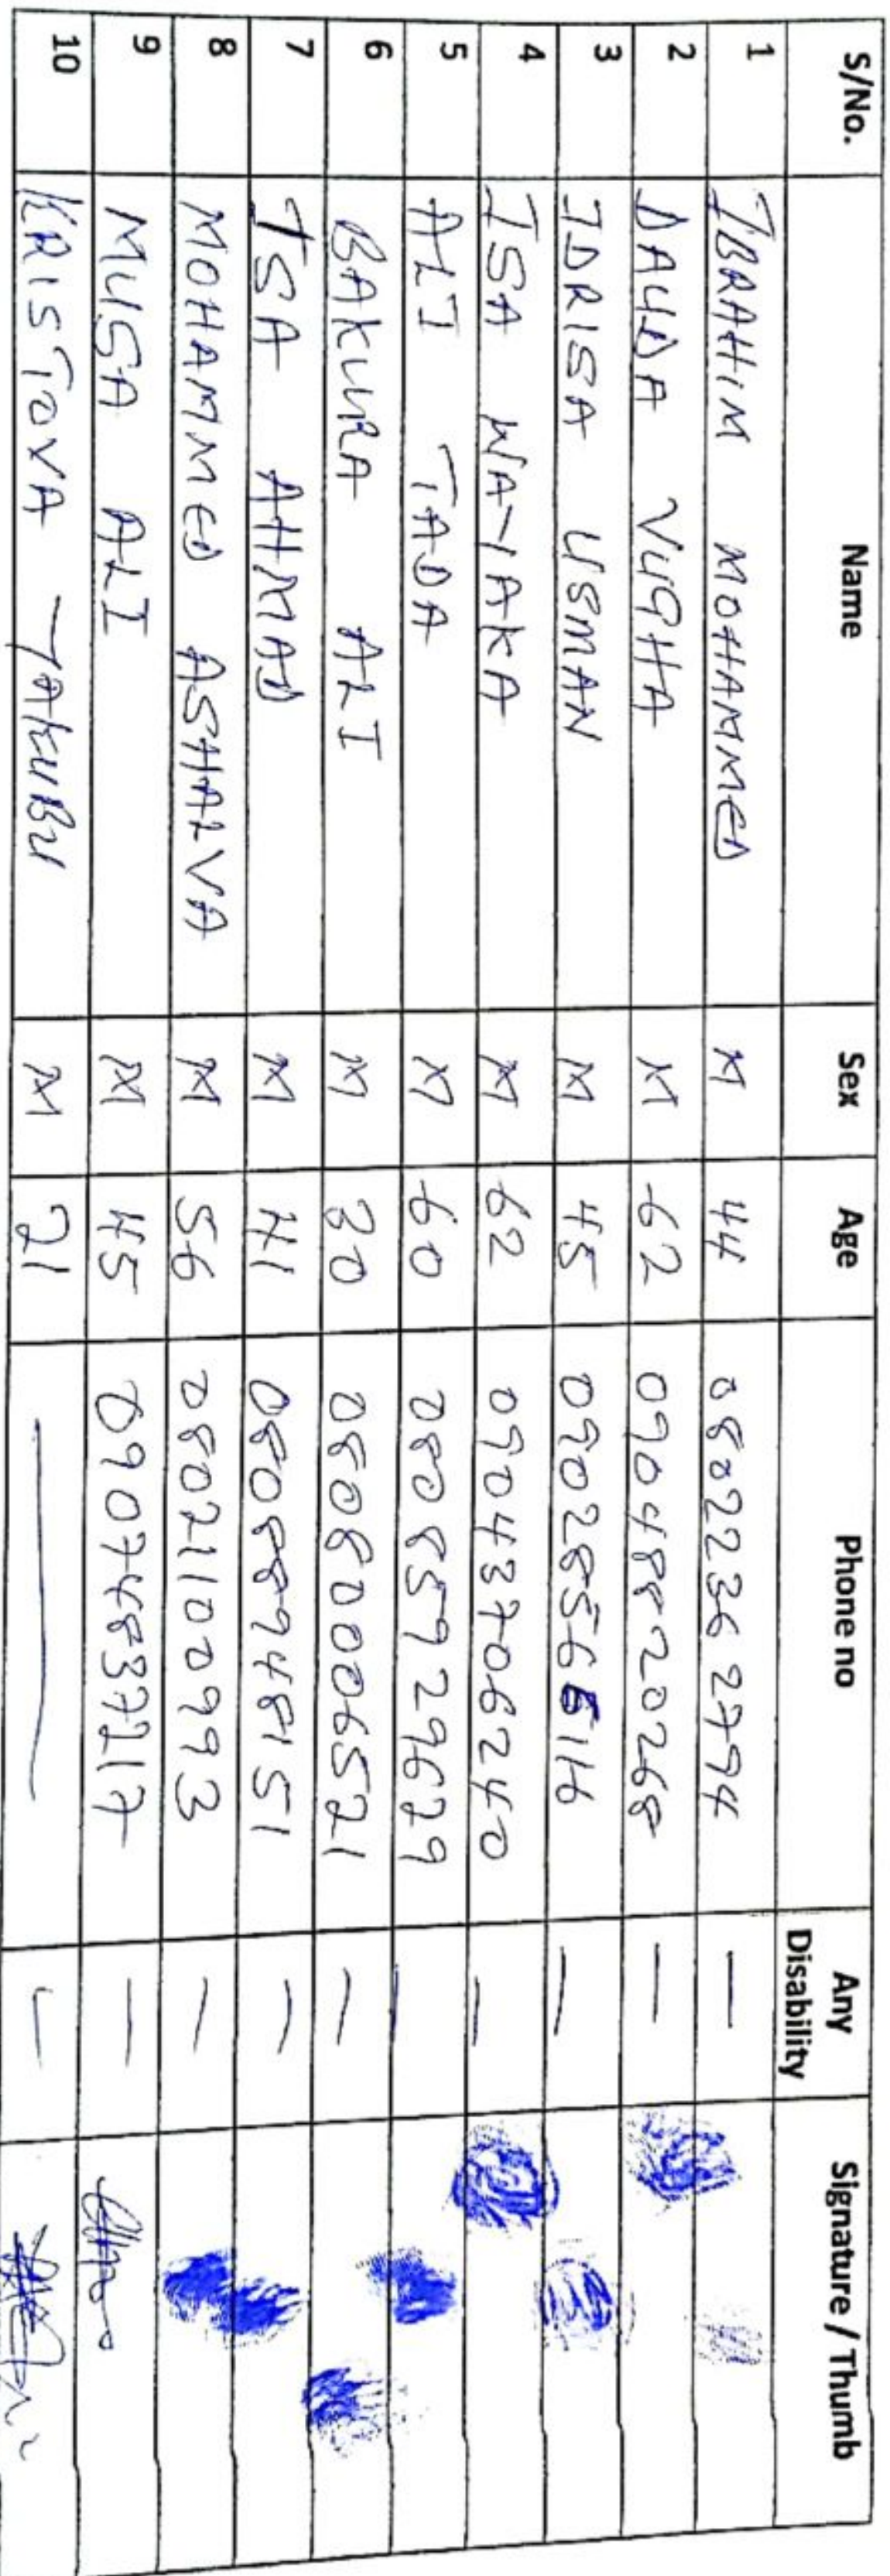 S/No. Name Sex Age Phone no Any Disability Signature / Thumb
1 IBRAHIM MOHAMMED M 44 08022362794 —
2 DAUDA VUGHA M 62 09048820268 —
3 IDRISA USMAN M 45 09028566116 —
4 ISA WAYAKA M 62 09043706240 —
5 ALI TADA M 60 08085929679 —
6 BAKURA ALI M 30 08080006521 —
7 ISA AHMAD M 41 08088948151 —
8 MOHAMMED ASHALVA M 56 08021100993 —
9 MUSA ALI M 45 09074837217 —
10 KRISTOVA YAKUBU M 21 — —